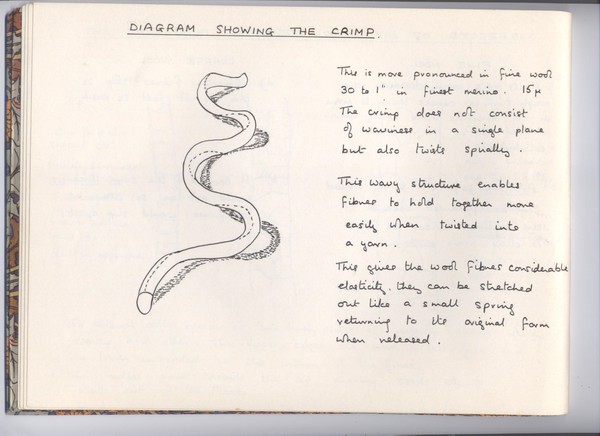 DIAGRAM SHOWING THE CRIMP.
This is more pronounced in fine wool
30 to 1" in finest merino. 15 μ
The crimp does not consist
of waviness in a single plane
but also twists spirally.
This wavy structure enables
fibres to hold together more
easily when twisted into
a yarn.
This gives the wool fibres considerable
elasticity. they can be stretched
out like a small spring
returning to its original form
when released.